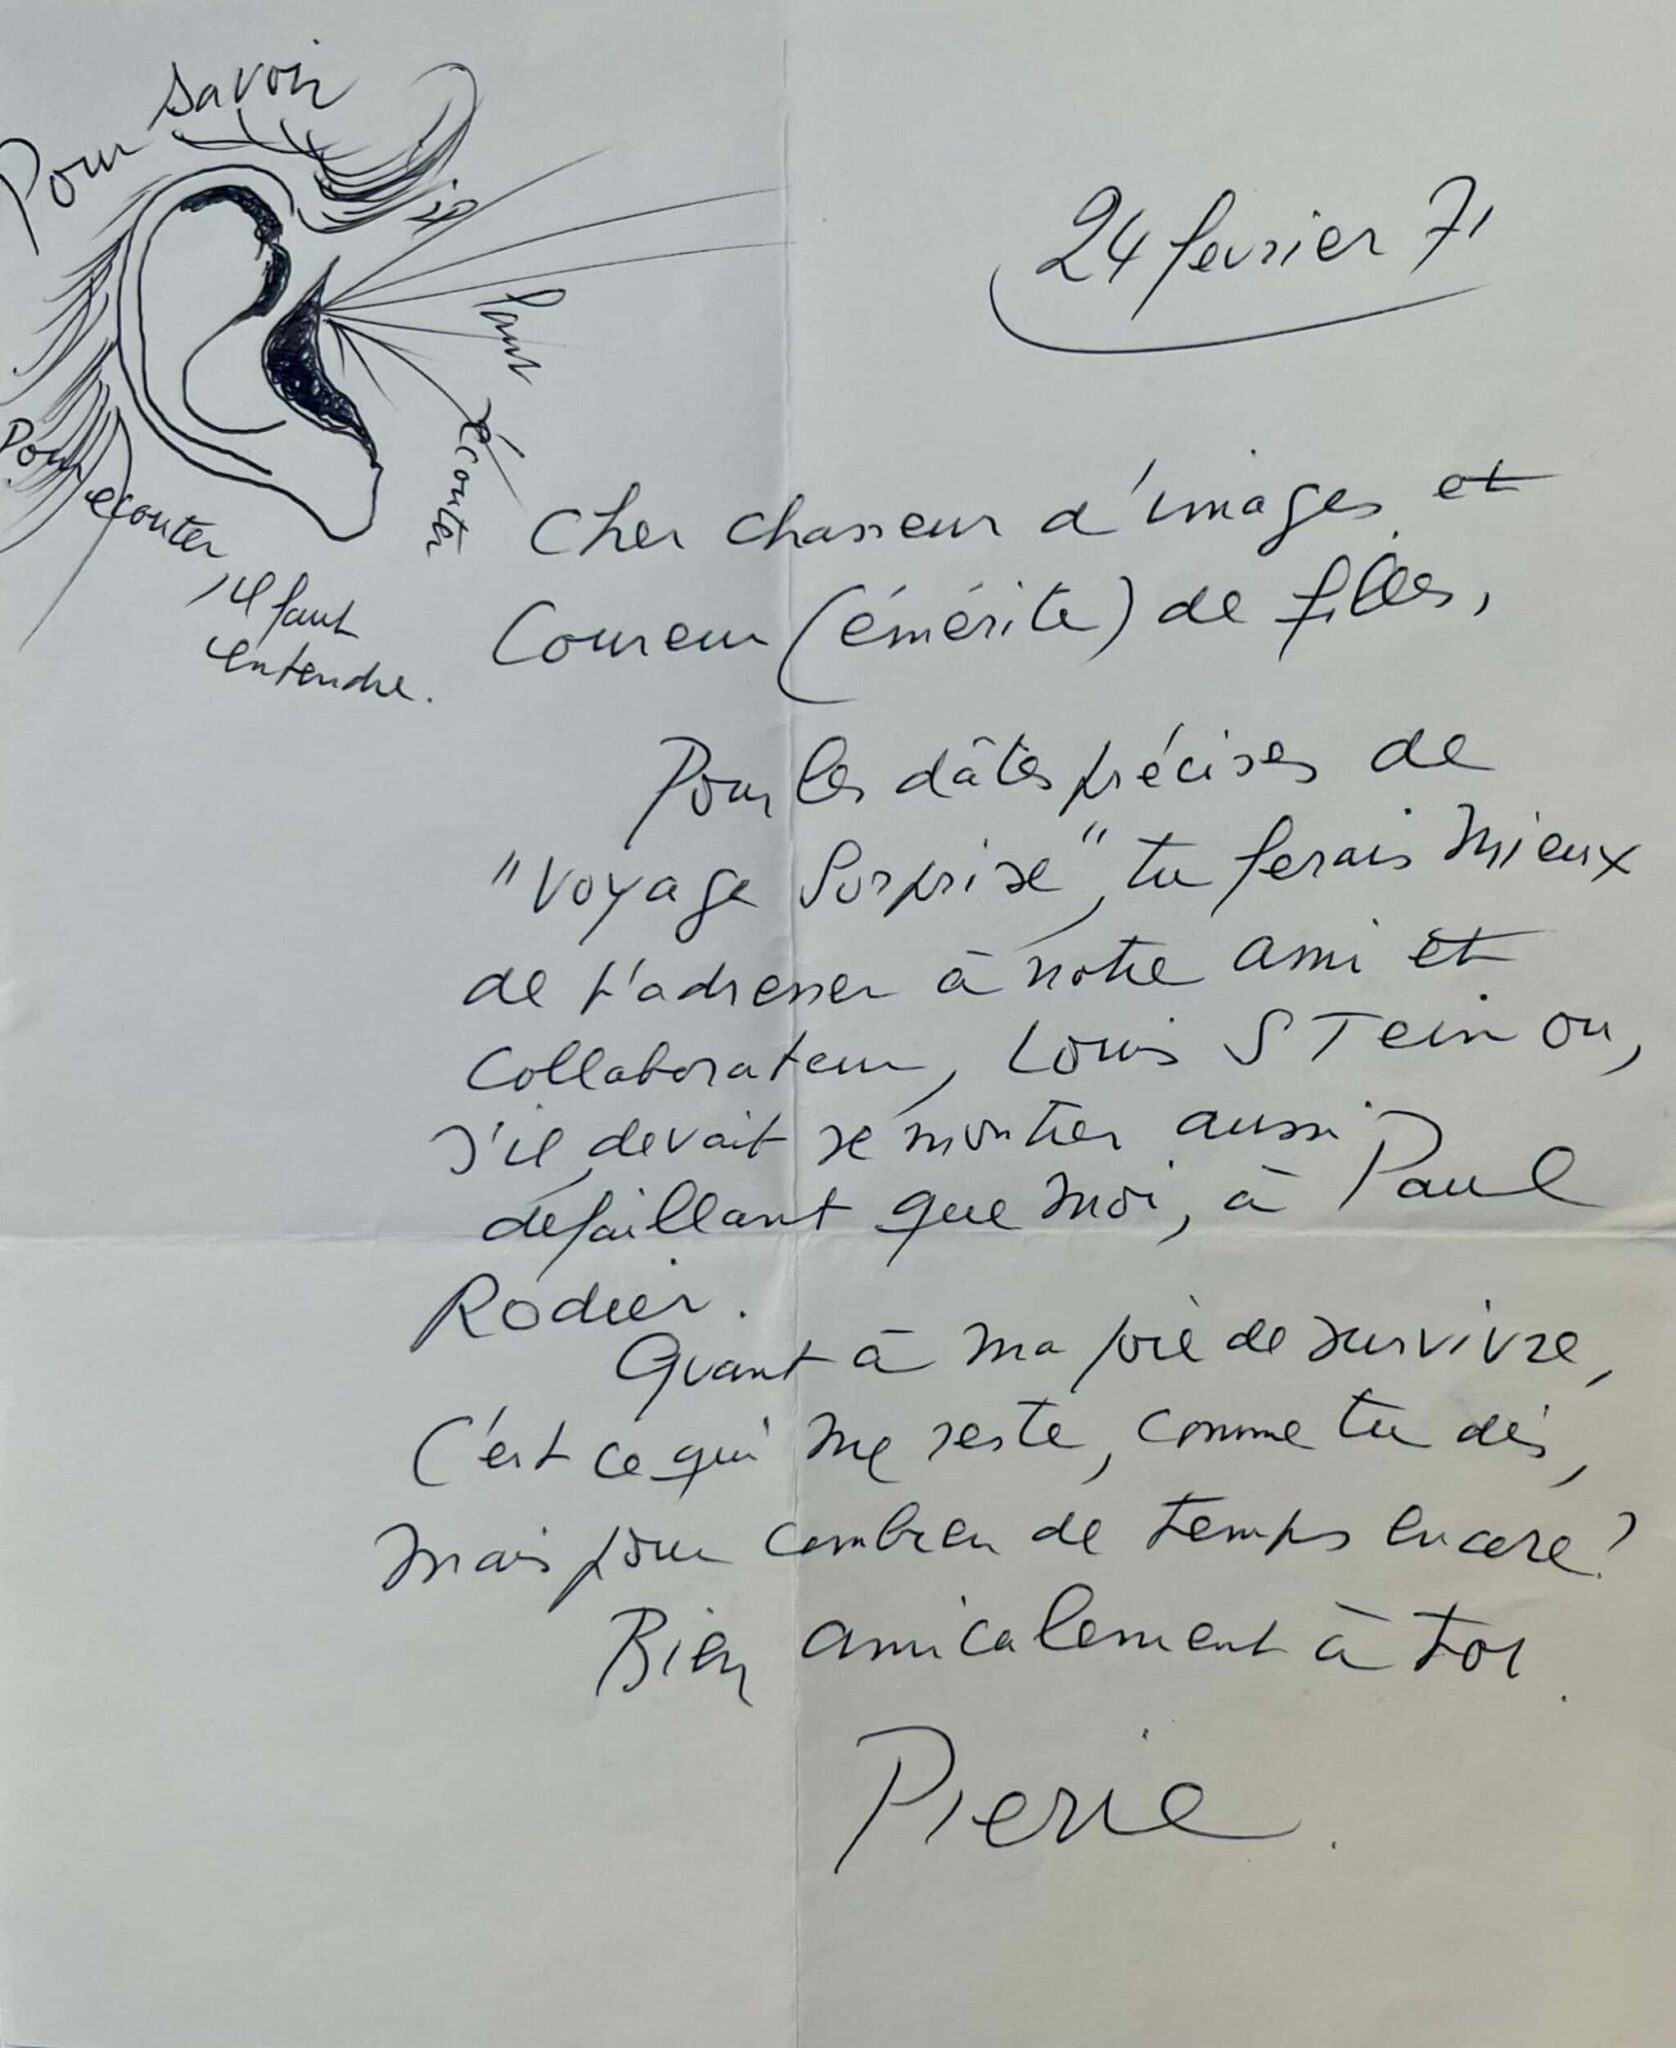 Pour savoir
il
faut
écouter
Pour
écouter,
il faut
entendre.
24 fevrier 71
Cher chasseur d'images et
Coureur (émérite) de filles,
Pour les dâtes précises de
"Voyage Surprise", tu ferais mieux
de t'adresser à notre ami et
collaborateur, Louis STein ou,
s'il devait se montrer aussi
défaillant que moi, à Paul
Rodier.
Quant à ma joie de survivre,
C'est ce qui me reste, comme tu dis,
mais pour combien de temps encore?
Bien amicalement à toi.
Pierre.